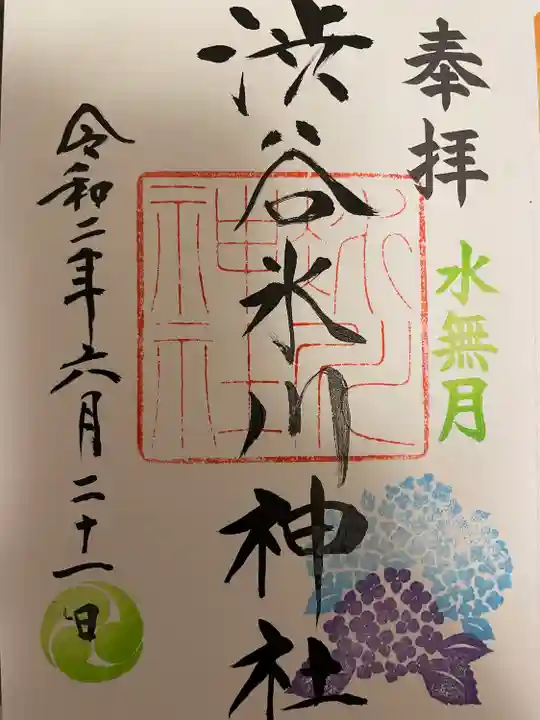 奉拝
水無月
渋谷氷川神社
氷川
神社
令和二年六月二十一日